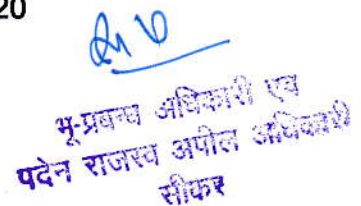 20
भू-प्रबन्ध अधिकारी एवं
पदेन राजस्व अपील अधिकारी
सीकर